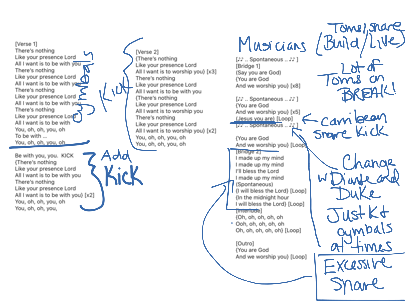 [Verse 1]
There's nothing
Like your presence Lord
All I want is to be with you
There's nothing
Like your presence Lord
All I want is to be with you
There's nothing
Like your presence Lord
All I want is to be with you
There's nothing
Like your presence Lord
All I want is to be with
You, oh, oh, you, oh
To be with ...
You, oh, oh, you, oh
Be with you, you. KICK
(There's nothing
Like your presence Lord
All I want is to be with you
There's nothing
Like your presence Lord
All I want is to be with you) {x2}
You, oh, oh, you, oh
You, oh, oh, you,
Add
Kick
Kick
[Verse 2]
(There's nothing
Like your presence Lord
All I want is to be with you) {x3}
There's nothing
Like your presence Lord
All I want is to be with you
(There's nothing
Like your presence Lord
All I want is to be with you
There's nothing
Like your presence Lord
All I want is to be with you) {x2}
You, oh, oh, you, oh
You, oh, oh, you, oh
Musicians
[♪♪ .. Spontaneous ..♪♪ ]
[Bridge 1]
(Say you are God)
(You are God
And we worship you) [x8]
[♪♪ .. Spontaneous ..♪♪ ]
(You are God
And we worship you) {x5}
(Jesus you are) [Loop]
[♪♪ .. Spontaneous ..♪♪ ]
(You are God
And we worship you) [Loop]
[Bridge 2]
I made up my mind
I made up my mind
I'll bless the Lord
I made up my mind
(Spontaneous)
(I will bless the Lord) [Loop]
(In the midnight hour
I will bless the Lord) [Loop]
[Interlude]
(Oh, oh, oh, oh, oh
Oh, oh, oh, oh, oh
Oh, oh, oh, oh, oh) [Loop]
[Outro]
(You are God
And we worship you) [Loop]
Toms/snare
(Build/Live)
Lot of
Toms on
BREAK!
carribean
snare Kick
Change
w Diante and
Duke
Just Kt
cymbals
at times
Excessive
Snare